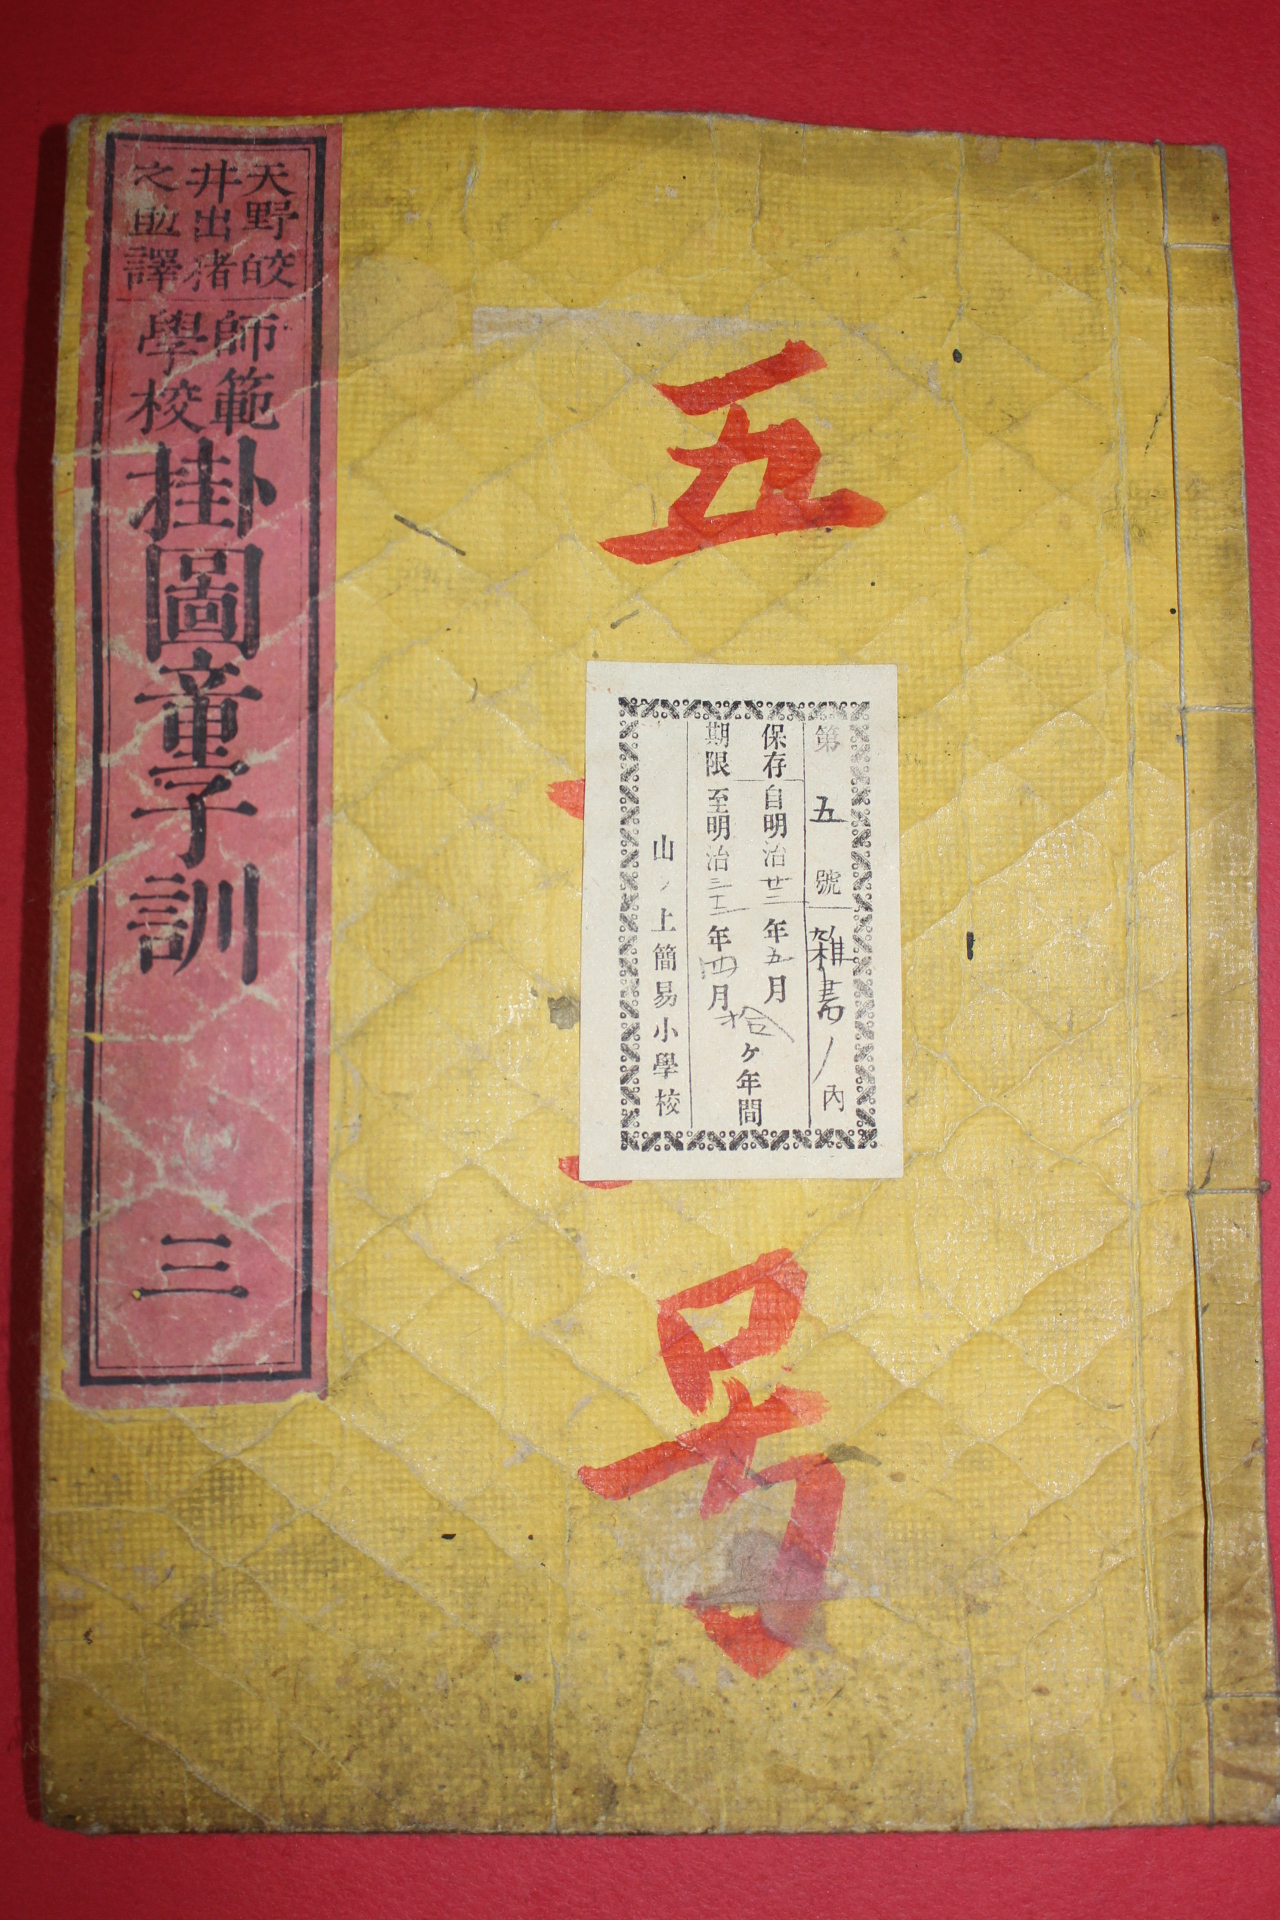 五
号
第五號雑書ノ內
保存
期限
自明治廿二年五月
至明治三十二年四月
拾ヶ年間
山ノ上簡易小學校
天野皎
井出猪
之助譯
師範
學校
掛圖童子訓
三